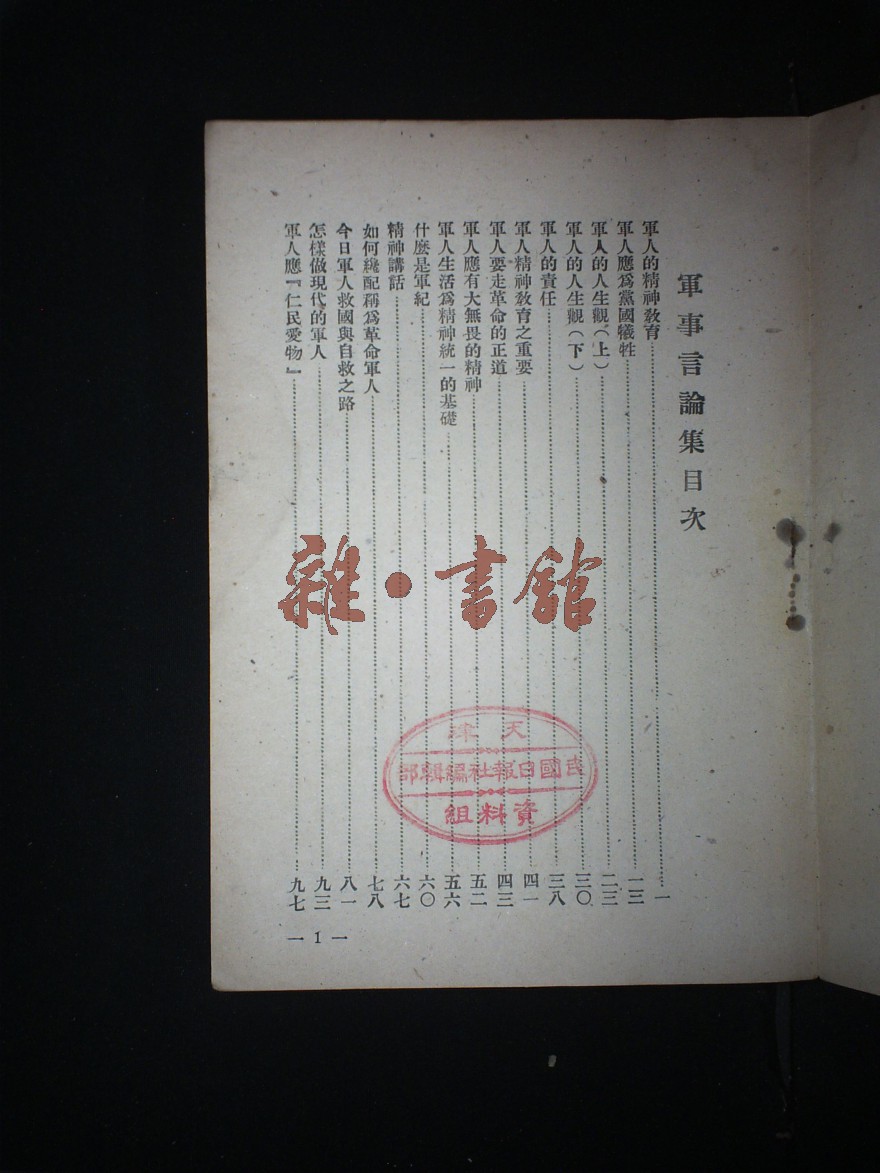 軍事言論集目次
軍人的精神教育……一
軍人應爲黨國犧牲……一三
軍人的人生觀(上)……二三
軍人的人生觀(下)……三〇
軍人的責任……三八
軍人精神教育之重要……四一
軍人要走革命的正道……四三
軍人應有大無畏的精神……五二
軍人生活爲精神統一的基礎……五六
什麽是軍紀……六〇
精神講話……六七
如何纔配稱爲革命軍人……七八
今日軍人救國與自救之路……八一
怎樣做現代的軍人……九三
軍人應『仁民愛物』……九七
— 1 —
雜·書館
天津
民國日報社編輯部
資料組